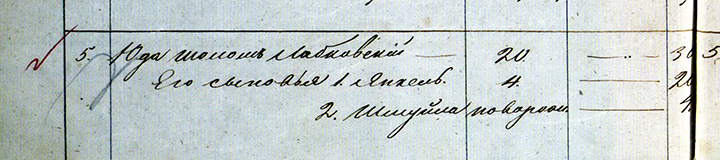 5. Юда Шоломъ Лабковскій — 20. — „ — 30 5
Его сыновья 1. Янкель. 4. — 20
2. Шмуйла новорож. — 4